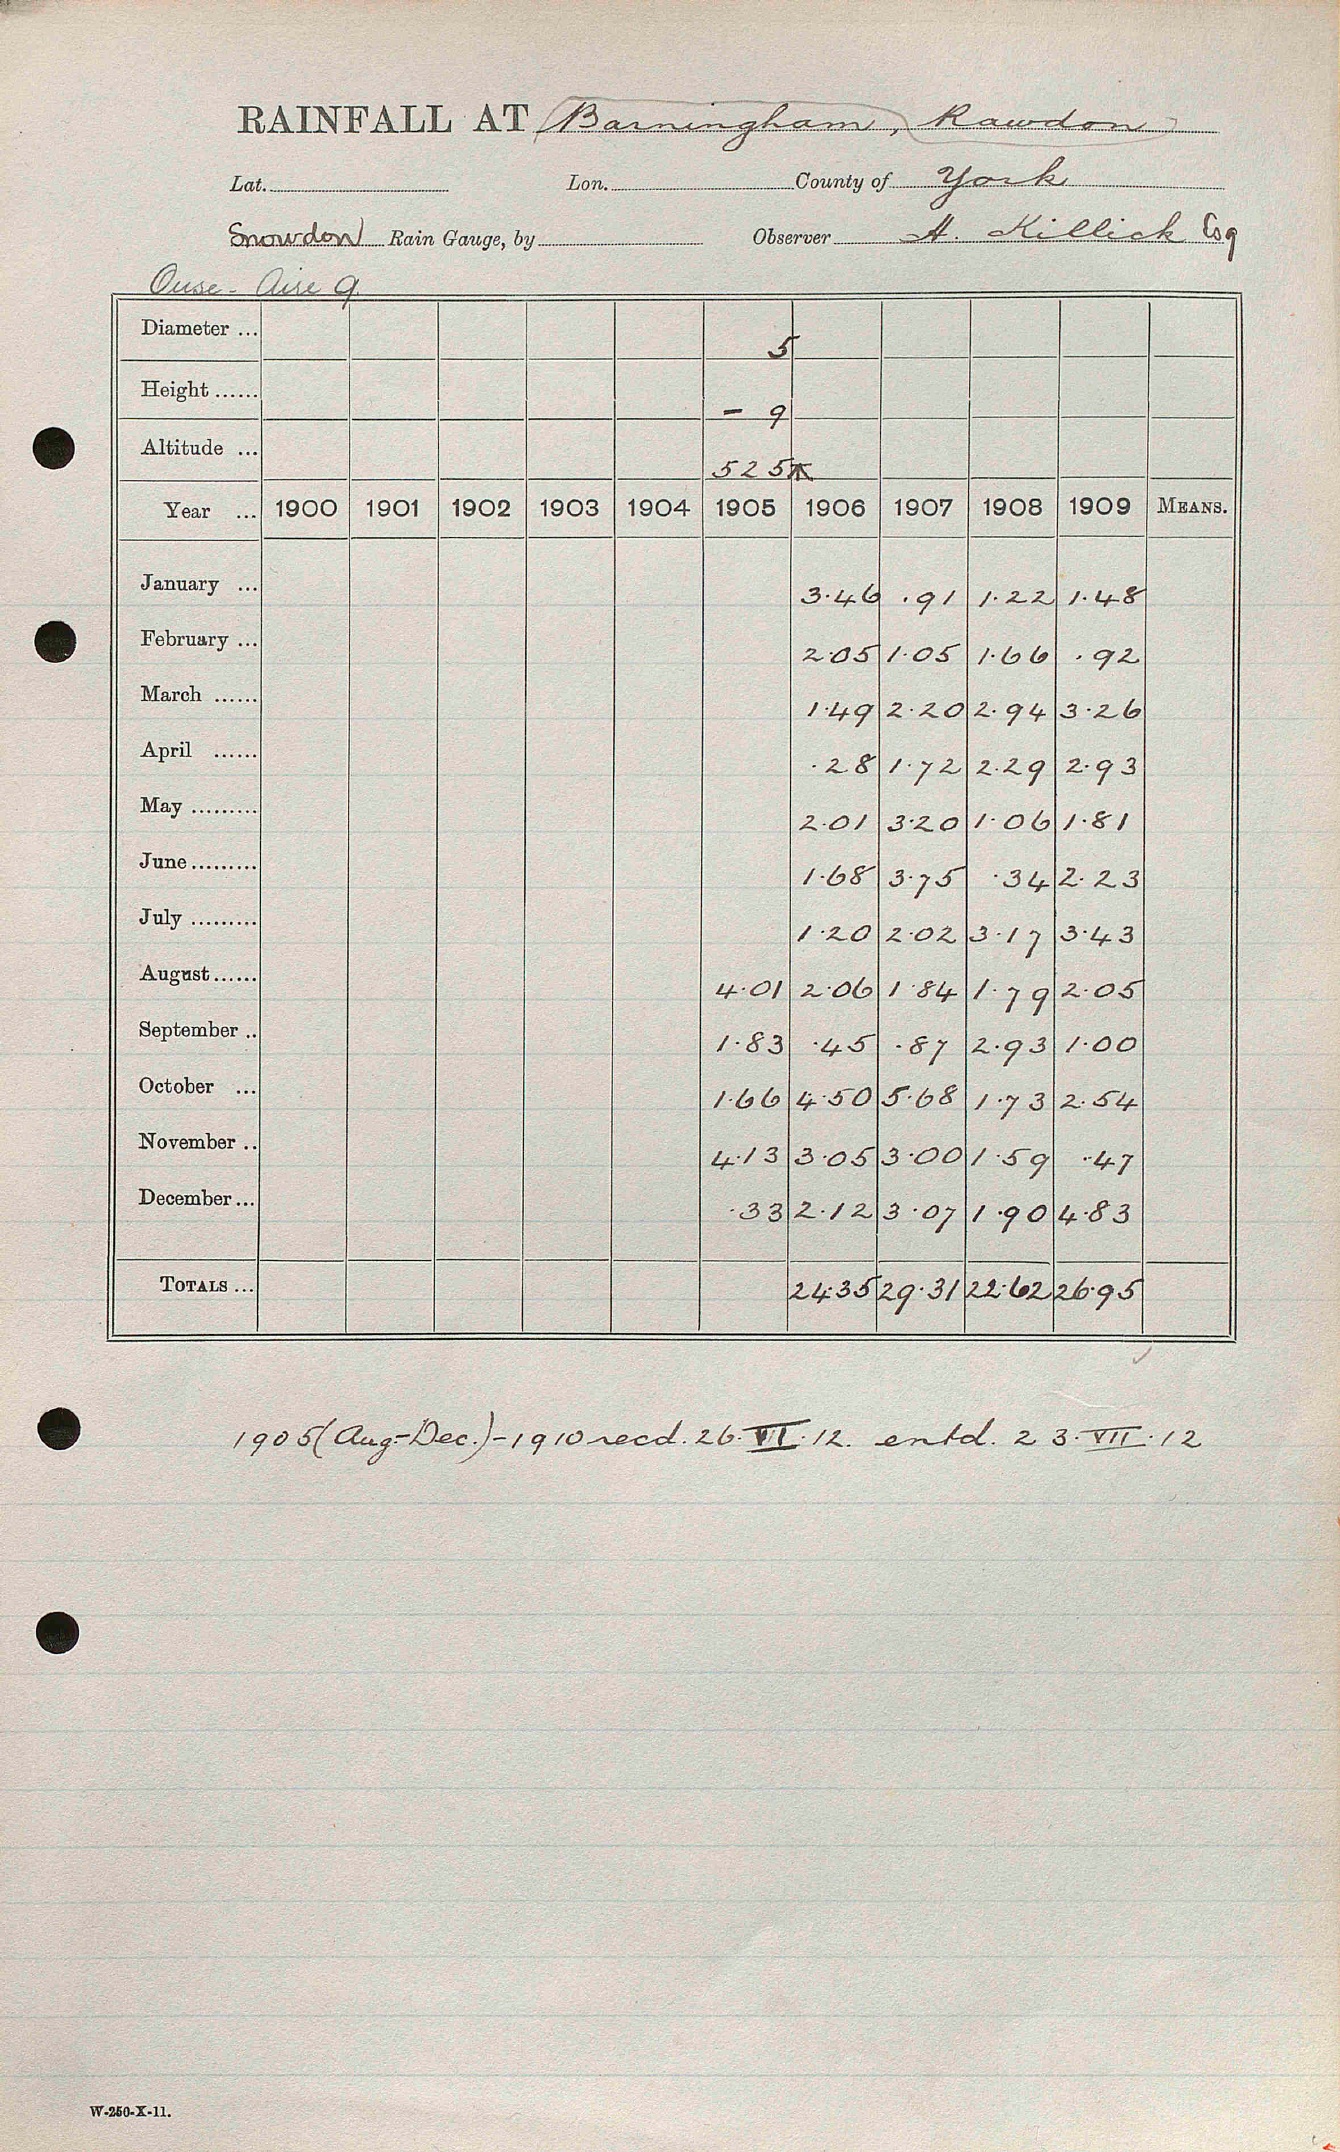 RAINFALL AT Barningham, Rawdon
Lat. Lon. County of York
Snowdon Rain Gauge, by Observer A. Killick Esq
Ouse - Aire 9
Diameter ... 5
Height ...... – 9
Altitude ... 525
Year ... 1900 1901 1902 1903 1904 1905 1906 1907 1908 1909 MEANS.
January ... 3.46 .91 1.22 1.48
February ... 2.05 1.05 1.66 .92
March ...... 1.49 2.20 2.94 3.26
April ...... .28 1.72 2.29 2.93
May ......... 2.01 3.20 1.06 1.81
June ......... 1.68 3.75 .34 2.23
July ......... 1.20 2.02 3.17 3.43
August ...... 4.01 2.06 1.84 1.79 2.05
September .. 1.83 .45 .87 2.93 1.00
October ... 1.66 4.50 5.68 1.73 2.54
November .. 4.13 3.05 3.00 1.59 .47
December ... .33 2.12 3.07 1.90 4.83
TOTALS ... 24.35 29.31 22.62 26.95
1905 (Aug.-Dec.) - 1910 recd. 26.VI.12. entd. 23.VII.12
W-250-X-11.